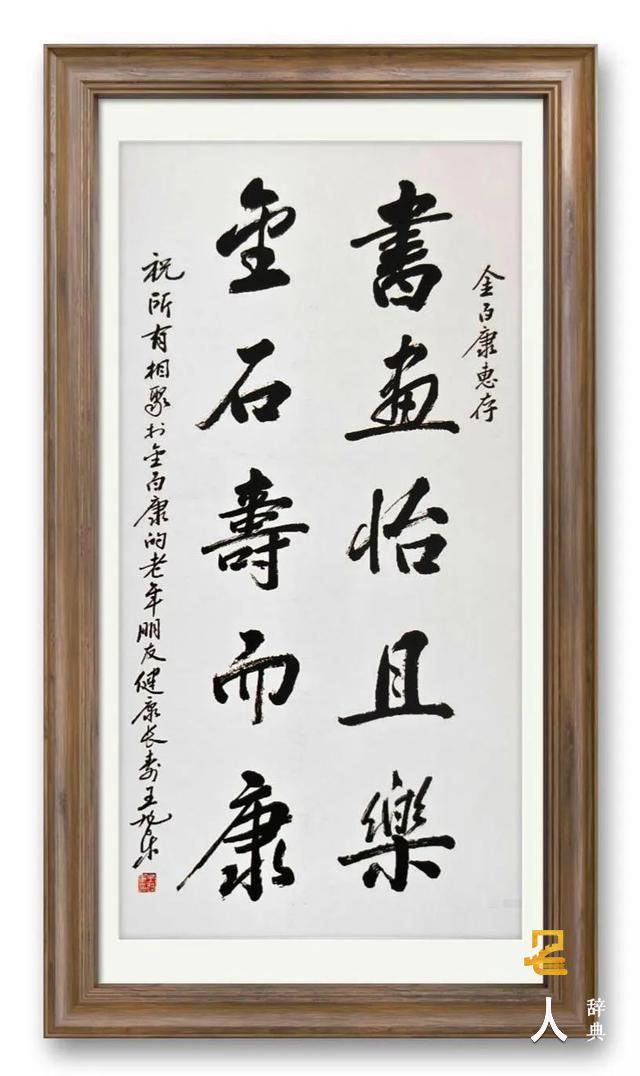 金百康惠存
書畫怡且樂
金石壽而康
祝所有相聚於金百康的老年朋友健康长寿王旭东
名人
辞典